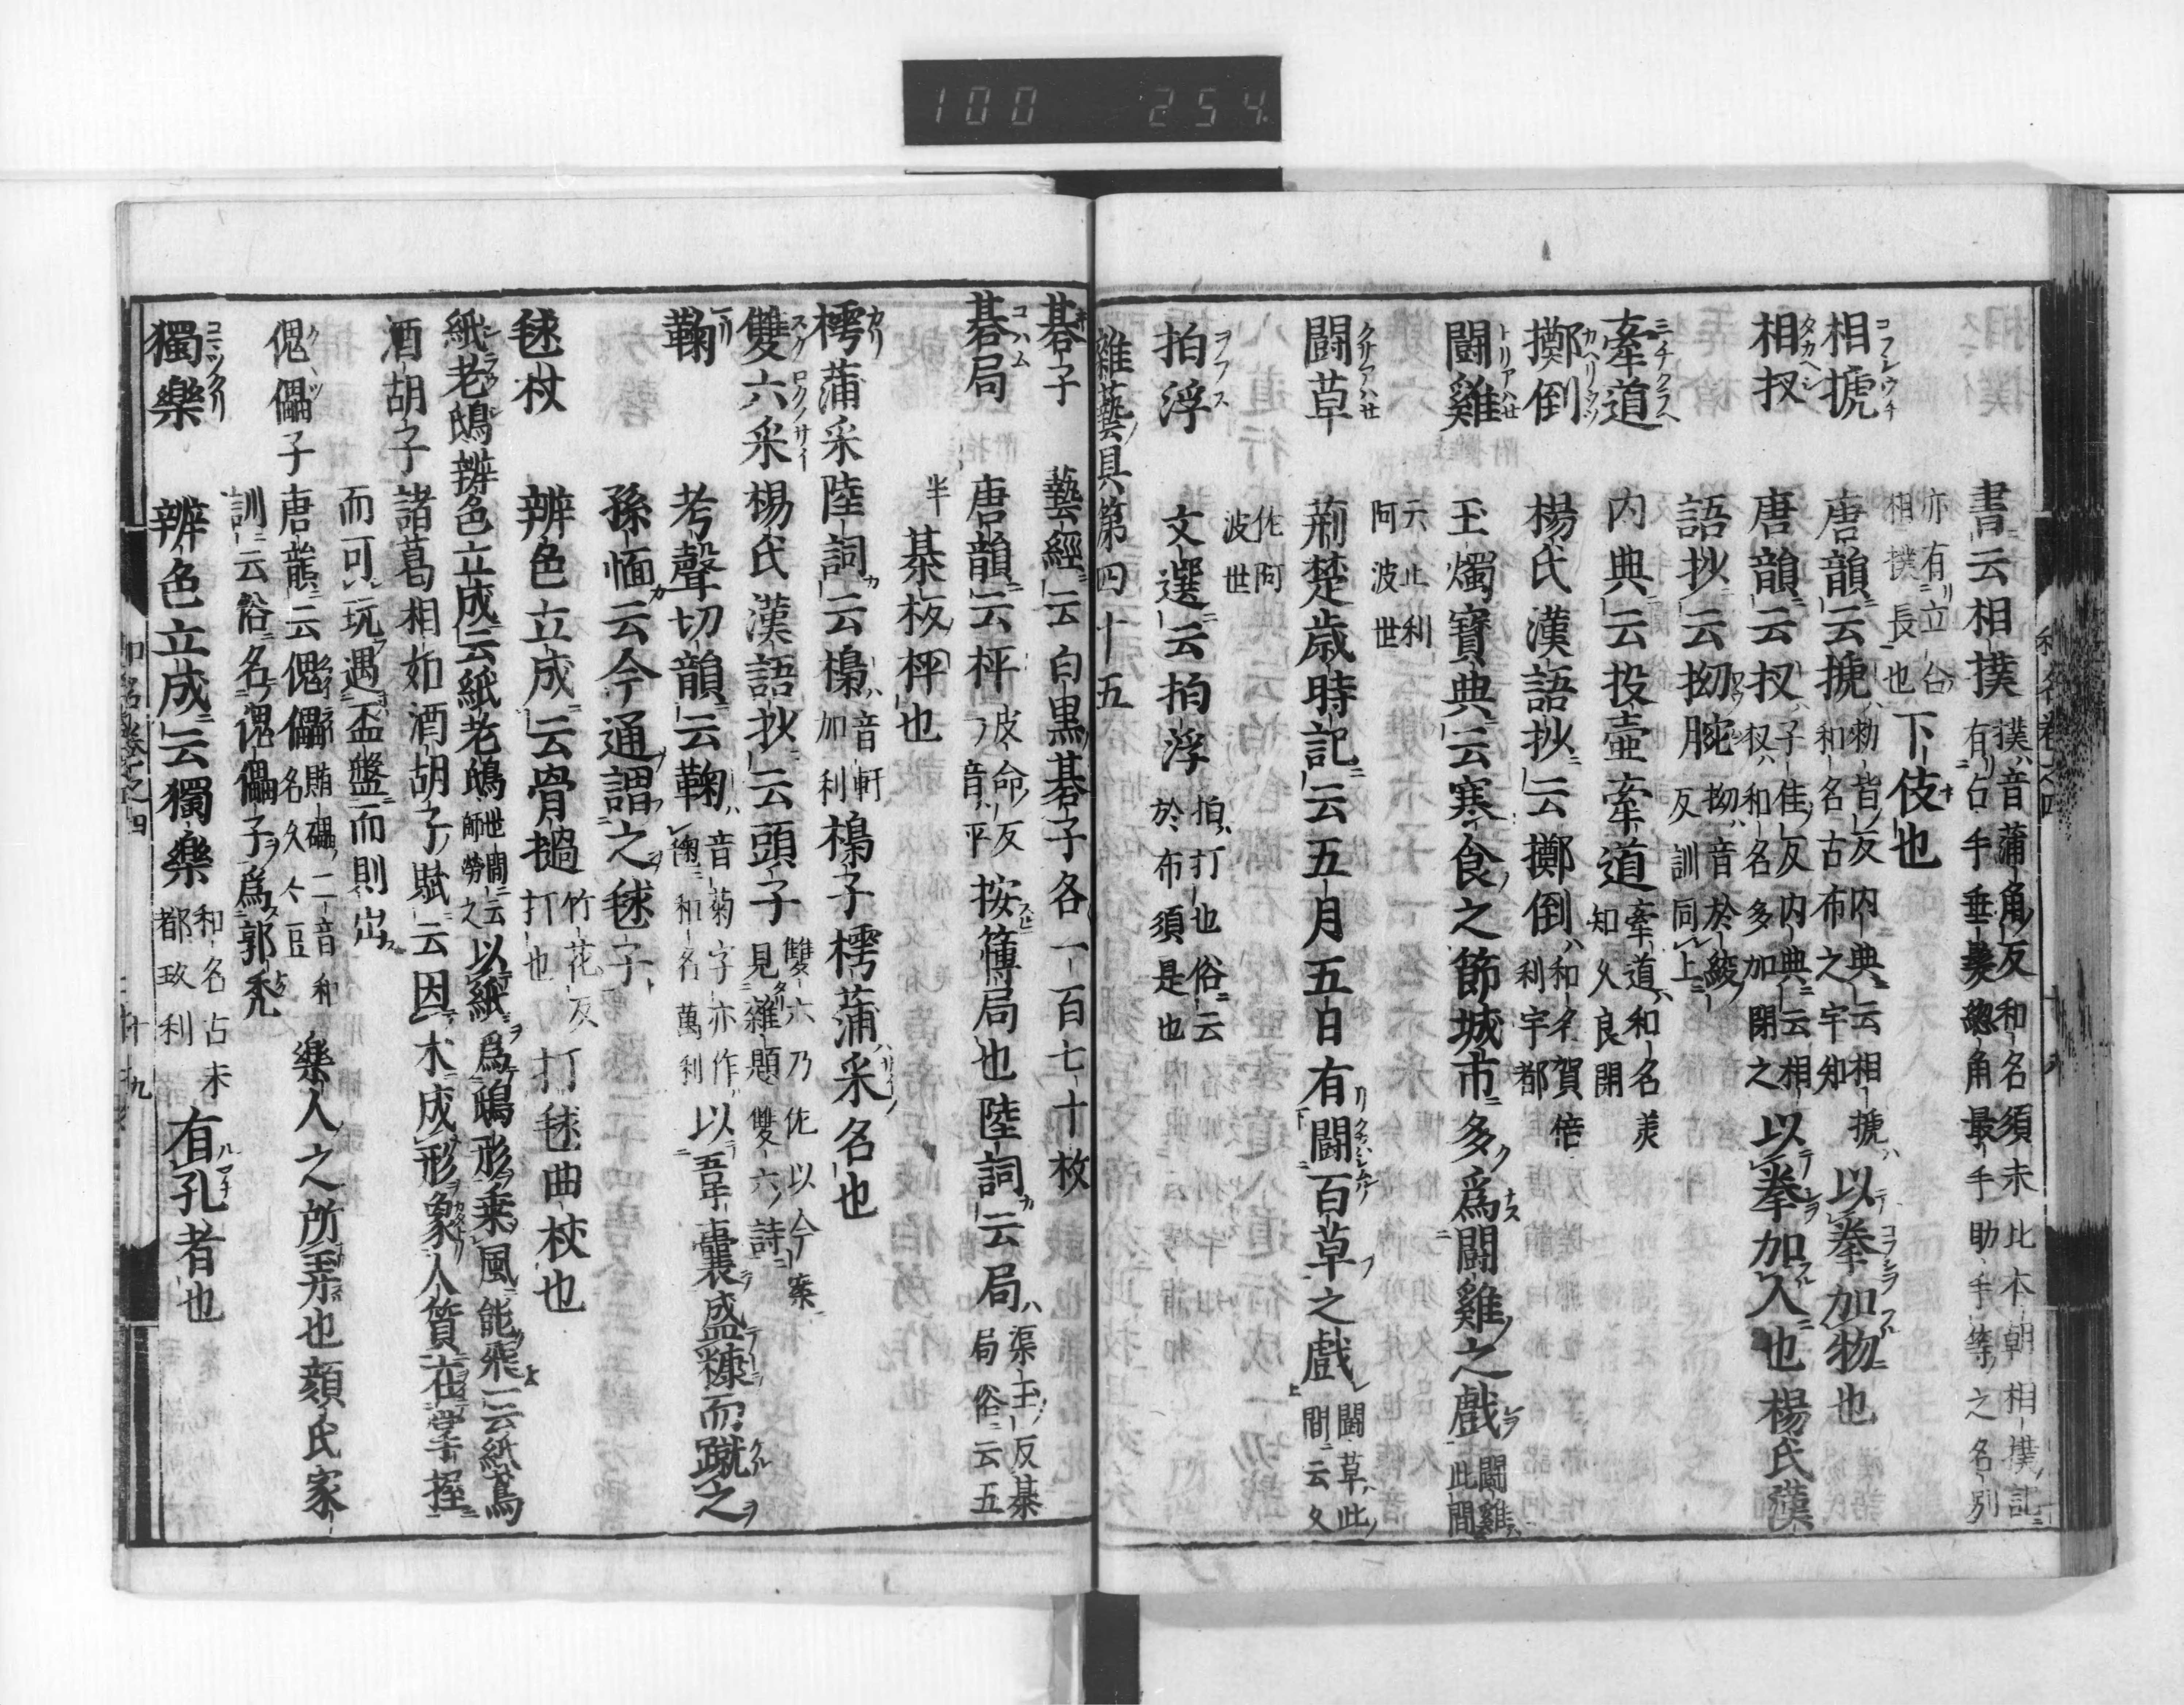 100 254
書云相撲 撲音蒲角反和名須末比本朝相撲記
有占手垂髪總角最手助手等之名別
亦有立合
相撲長也 下伎也
相搋 唐韻云搋 勑皆反内典云相搋
和名古布之宇知 以拳加物也
相扠 唐韻云扠 子佳反内典云相
扠和名多加閇之 以拳加人也楊氏漢
語抄云拗腕 拗音於絞
反訓同上
牽道 内典云投壷牽道 牽道和名美
知久良閇
擲倒 楊氏漢語抄云擲倒 和名賀倍
利宇都
闘雞 玉燭寶典云寒食之節城市多爲闘雞之戯 闘雞
此間
云止利
阿波世
闘草 荊楚歳時記云五月五日有闘百草之戯 闘草此
間云久
佐阿
波世
拍浮 文選云拍浮 拍打也俗云
於布須是也
雜藝具第四十五
碁子 藝經云白黒碁子各一百七十枚
碁局 唐韻云枰 皮命反
音平 按簿局也陸詞云局 渠玉反棊
局俗云五
半 棊板枰也
樗蒲采 陸詞云梟 音軒
加利 梟子樗蒲采名也
雙六采 楊氏漢語抄云頭子 雙六乃佐以今案
見雜題雙六詩
鞠 考聲切韻云鞠 音菊字亦作
和名萬利 以韋囊盛糠而蹴之
孫愐云今通謂之毬子
毬杖 辨色立成云骨撾 竹花反
打也 打毬曲杖也
紙老鴟 辨色立成云紙老鴟 世間云
師勞之 以紙爲鴟形乗風能飛一云紙鳶
酒胡子 諸葛相如酒胡子賦云因木成形象人質在掌握
而可玩遇盃盤而則出
傀儡子 唐韻云傀儡 賄礧二音和
名久々豆 樂人之所弄也顔氏家
訓云俗名傀儡子爲郭禿
獨樂 辨色立成云獨樂 和名古末
都玖利 有孔者也